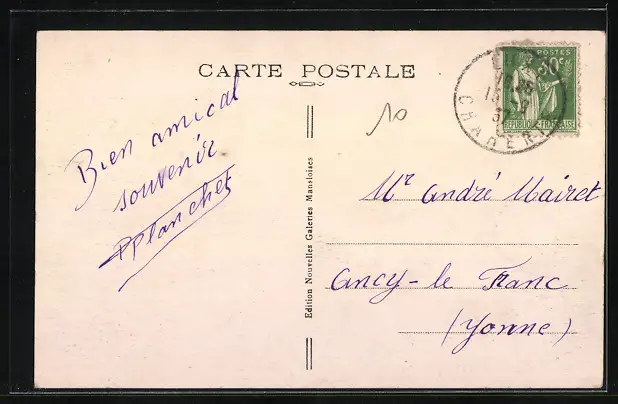 CARTE POSTALE
Bien amical
souvenir
PPlanchet
Edition Nouvelles Galeries Mansloises
10
POSTES
REPUBLIQUE FRANÇAISE
Mr André Mairet
Ancy-le Franc
(Yonne)